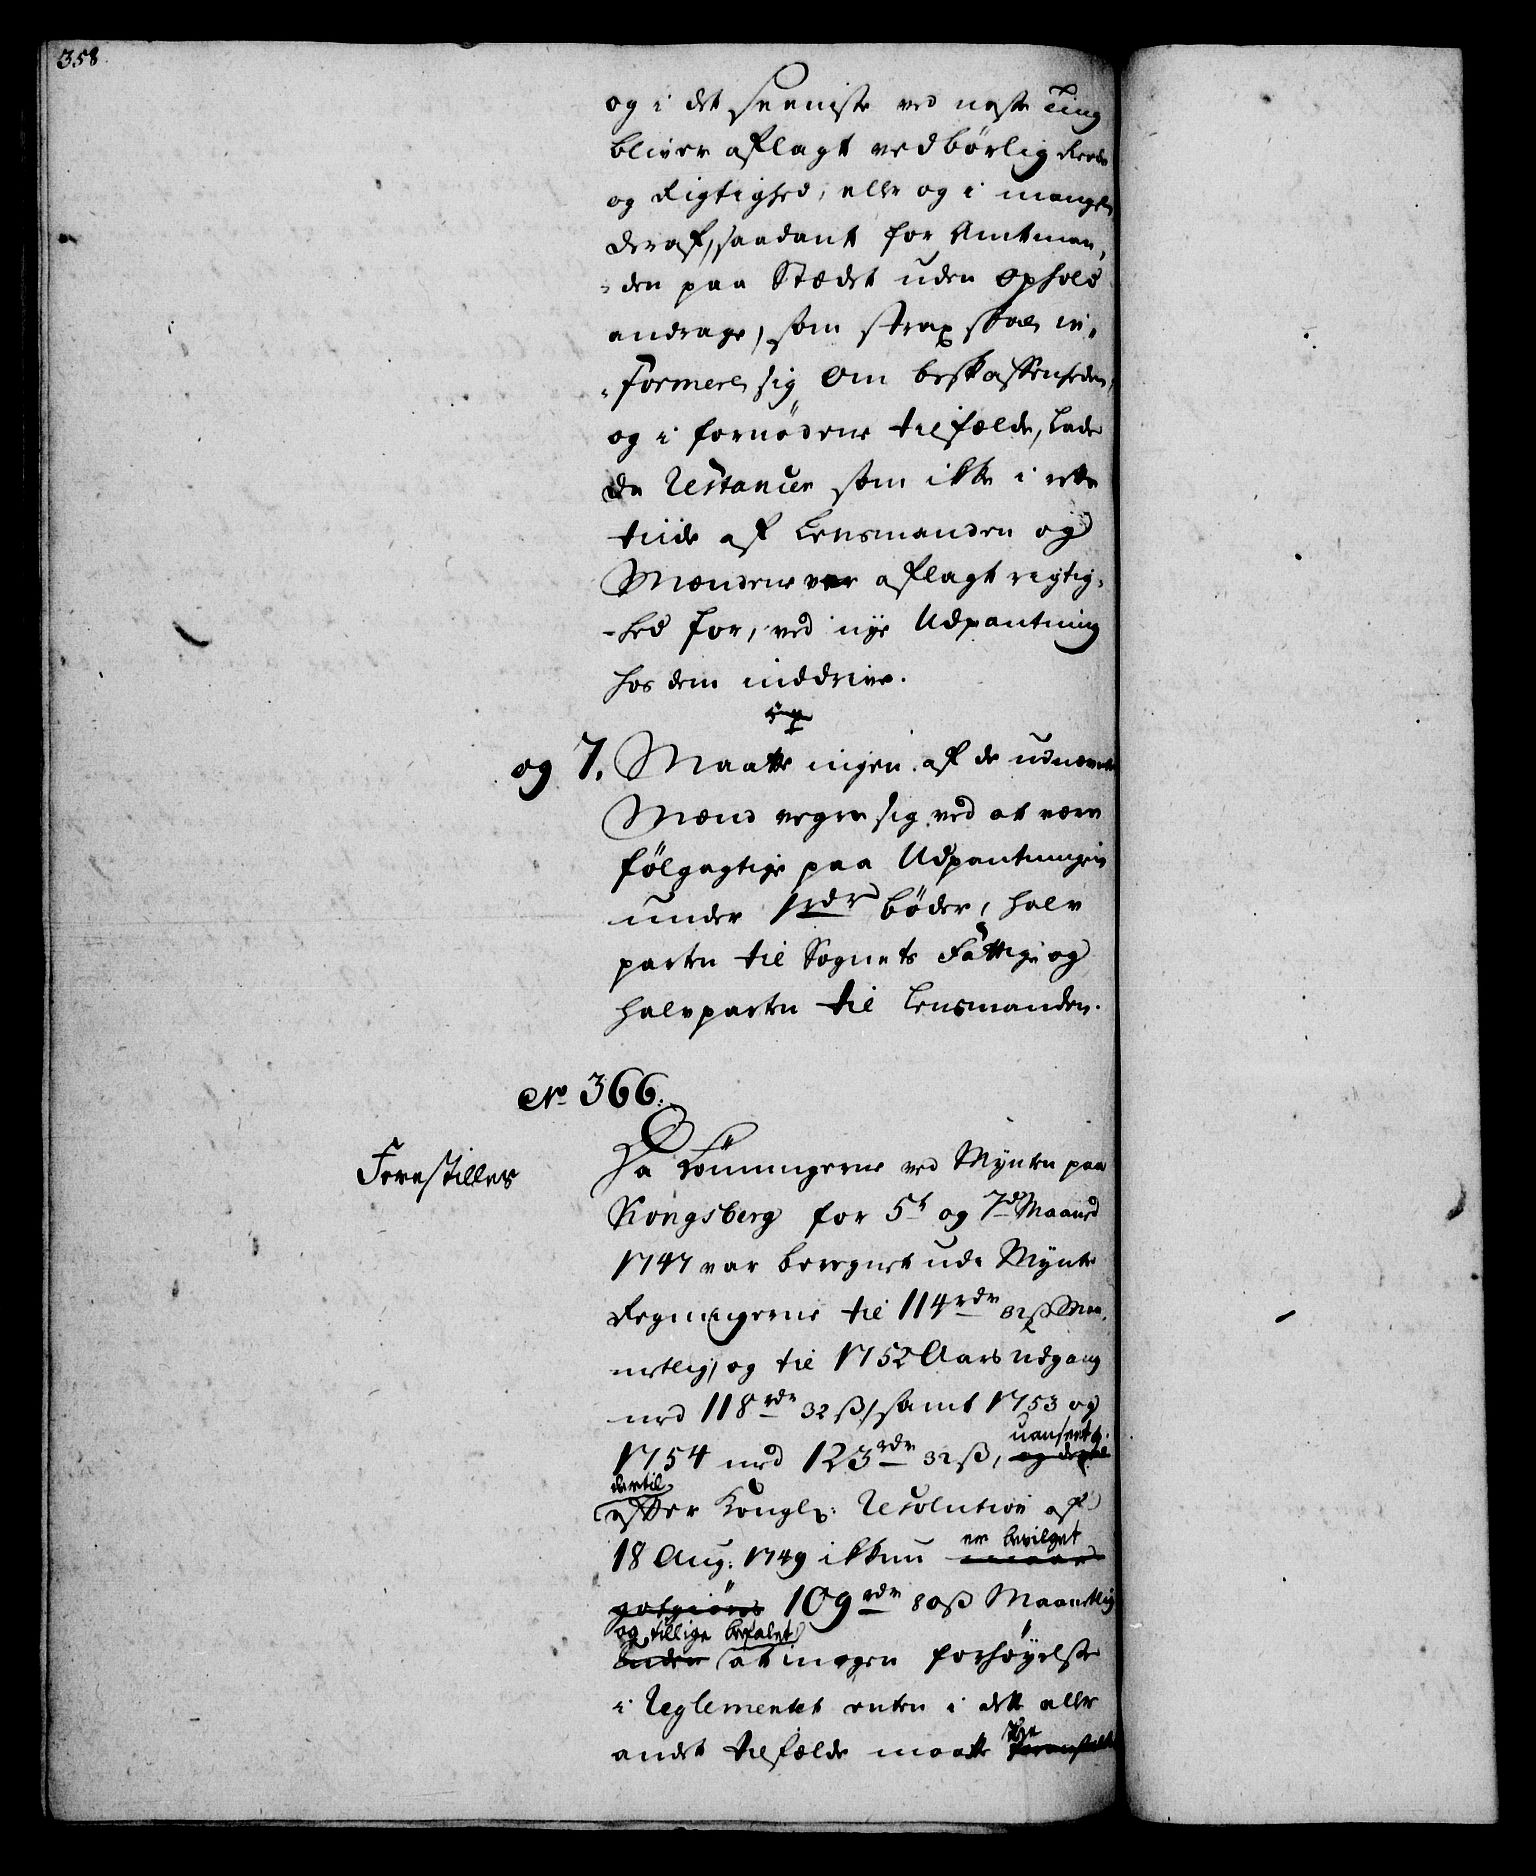 358
og i det seeniste ved neste Ting
bliver aflagt vedbörlig Rede
og Rigtighed, eller og i mangel
deraf, saadant for Amtman-
-den paa Stædet uden Ophold
andrage, som strax skal in-
-formere sig om beskaffenheden,
og i fornödene tilfælde, lade
de Restancer som ikke i rette
tiide af Lensmanden og
Mændene er aflagt rigtig-
-hed for, ved nye Udpantning
hos dem inddrive.
og 7. Maatte ingen af de udnævnte
Mænd vegre sig ved at være
fölgagtige paa Udpantningen
under 1 rdr böder, halv
parten til Sognets Fattige og
halvparten til Lensmanden.
No 366.
Forestilles
Da Lönningerne ved Mynten paa
Kongsberg for 5t og 7d Maaned
1747 var beregnet udi Mynte
Regningerne til 114 rdr 82 ß Maa-
netlig, og til 1752 Aars Udgang
med 118 rdr 32 ß, samt 1753 og
1754 med 123 rdr 32 ß, uanseet
dertil
efter Kongl: Resolution af
18 Aug: 1749 ikkun er bevilget
109 rdr 80 ß Maanetlig
og tillige befalet
at ingen forhöyelse
i Reglementet enten i dette eller
andet tilfælde maatte